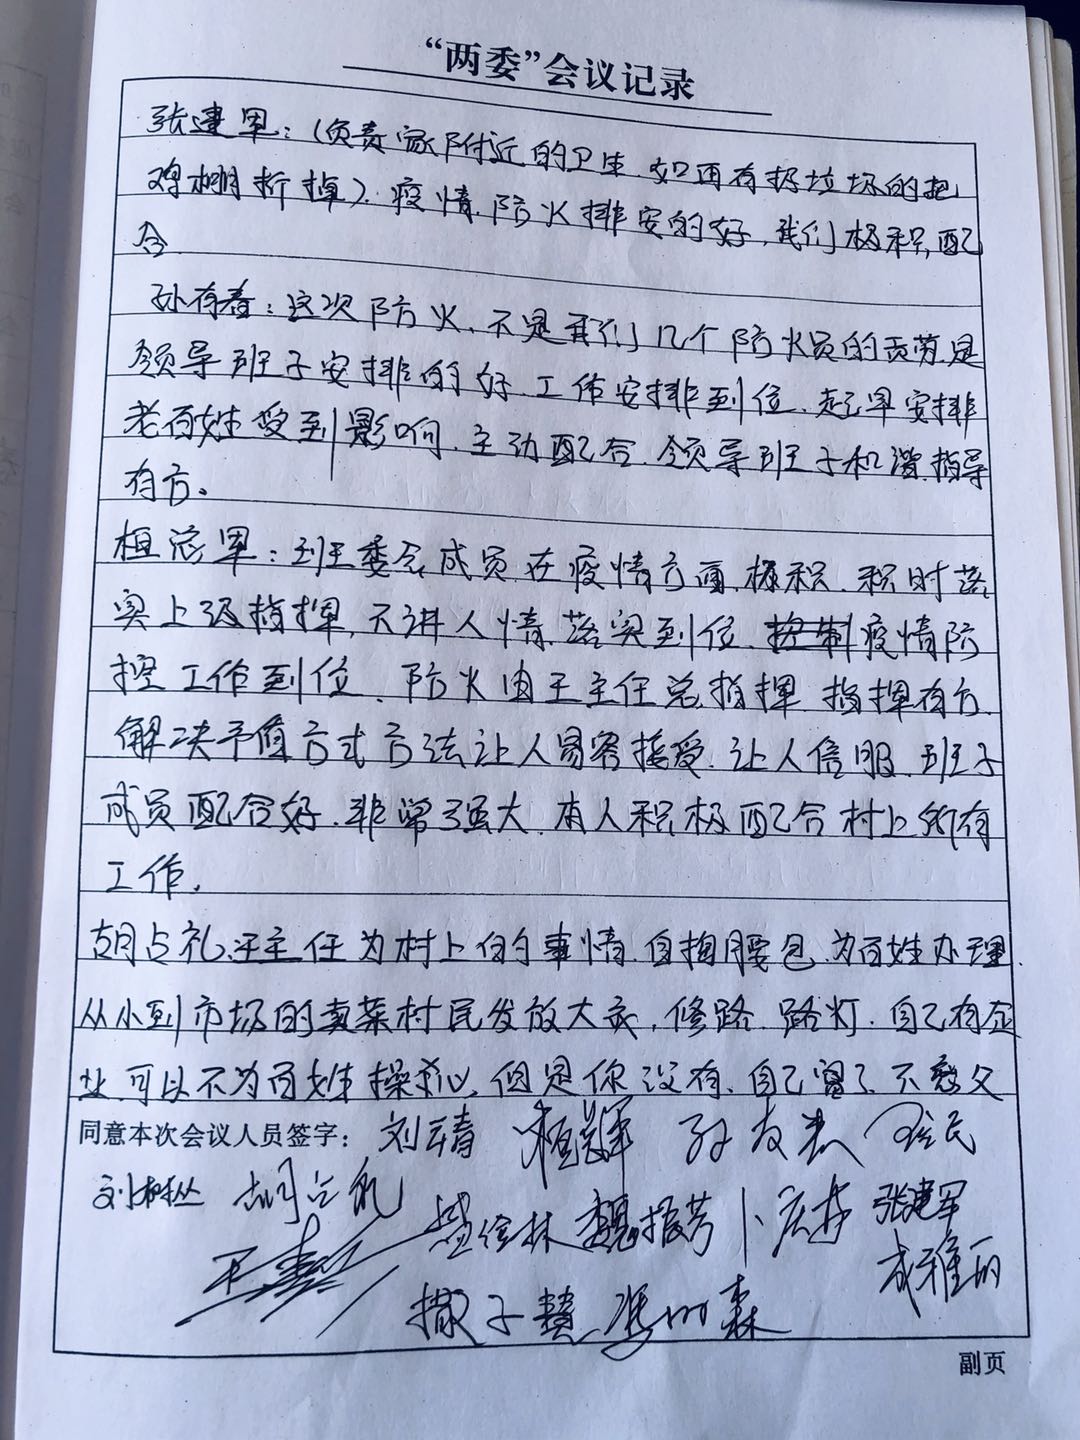 “两委”会议记录
张建军：（负责家附近的卫生.如再有扔垃圾的把
鸡棚拆掉）.疫情.防火排安的好.我们极积配
合
孙有春：这次防火.不是我们几个防火员的贡劳是
领导班子安排的好.工作安排到位.起早安排
老百姓受到影响.主动配合.领导班子和谐.指导
有方。
桓总军：班委会成员在疫情方面.极积.积时落
实上级指挥,不讲人情.落实到位.疫情防
控工作到位.防火由王主任总指挥.指挥有方.
解决予值方式方法让人容接受.让人信服.班子
成员配合好.非常强大.本人积极配合村上所有
工作.
胡占礼:王主任为村上的事情.自掏腰包.为百姓办理.
从小到市场的卖菜村民发放大衣.修路.路灯.自己有企
业.可以不为百姓操心.但是你没有.自己富了.不忘父
同意本次会议人员签字：刘 孙友
刘树 胡占礼 林 魏 张建军
成雅 森
副页